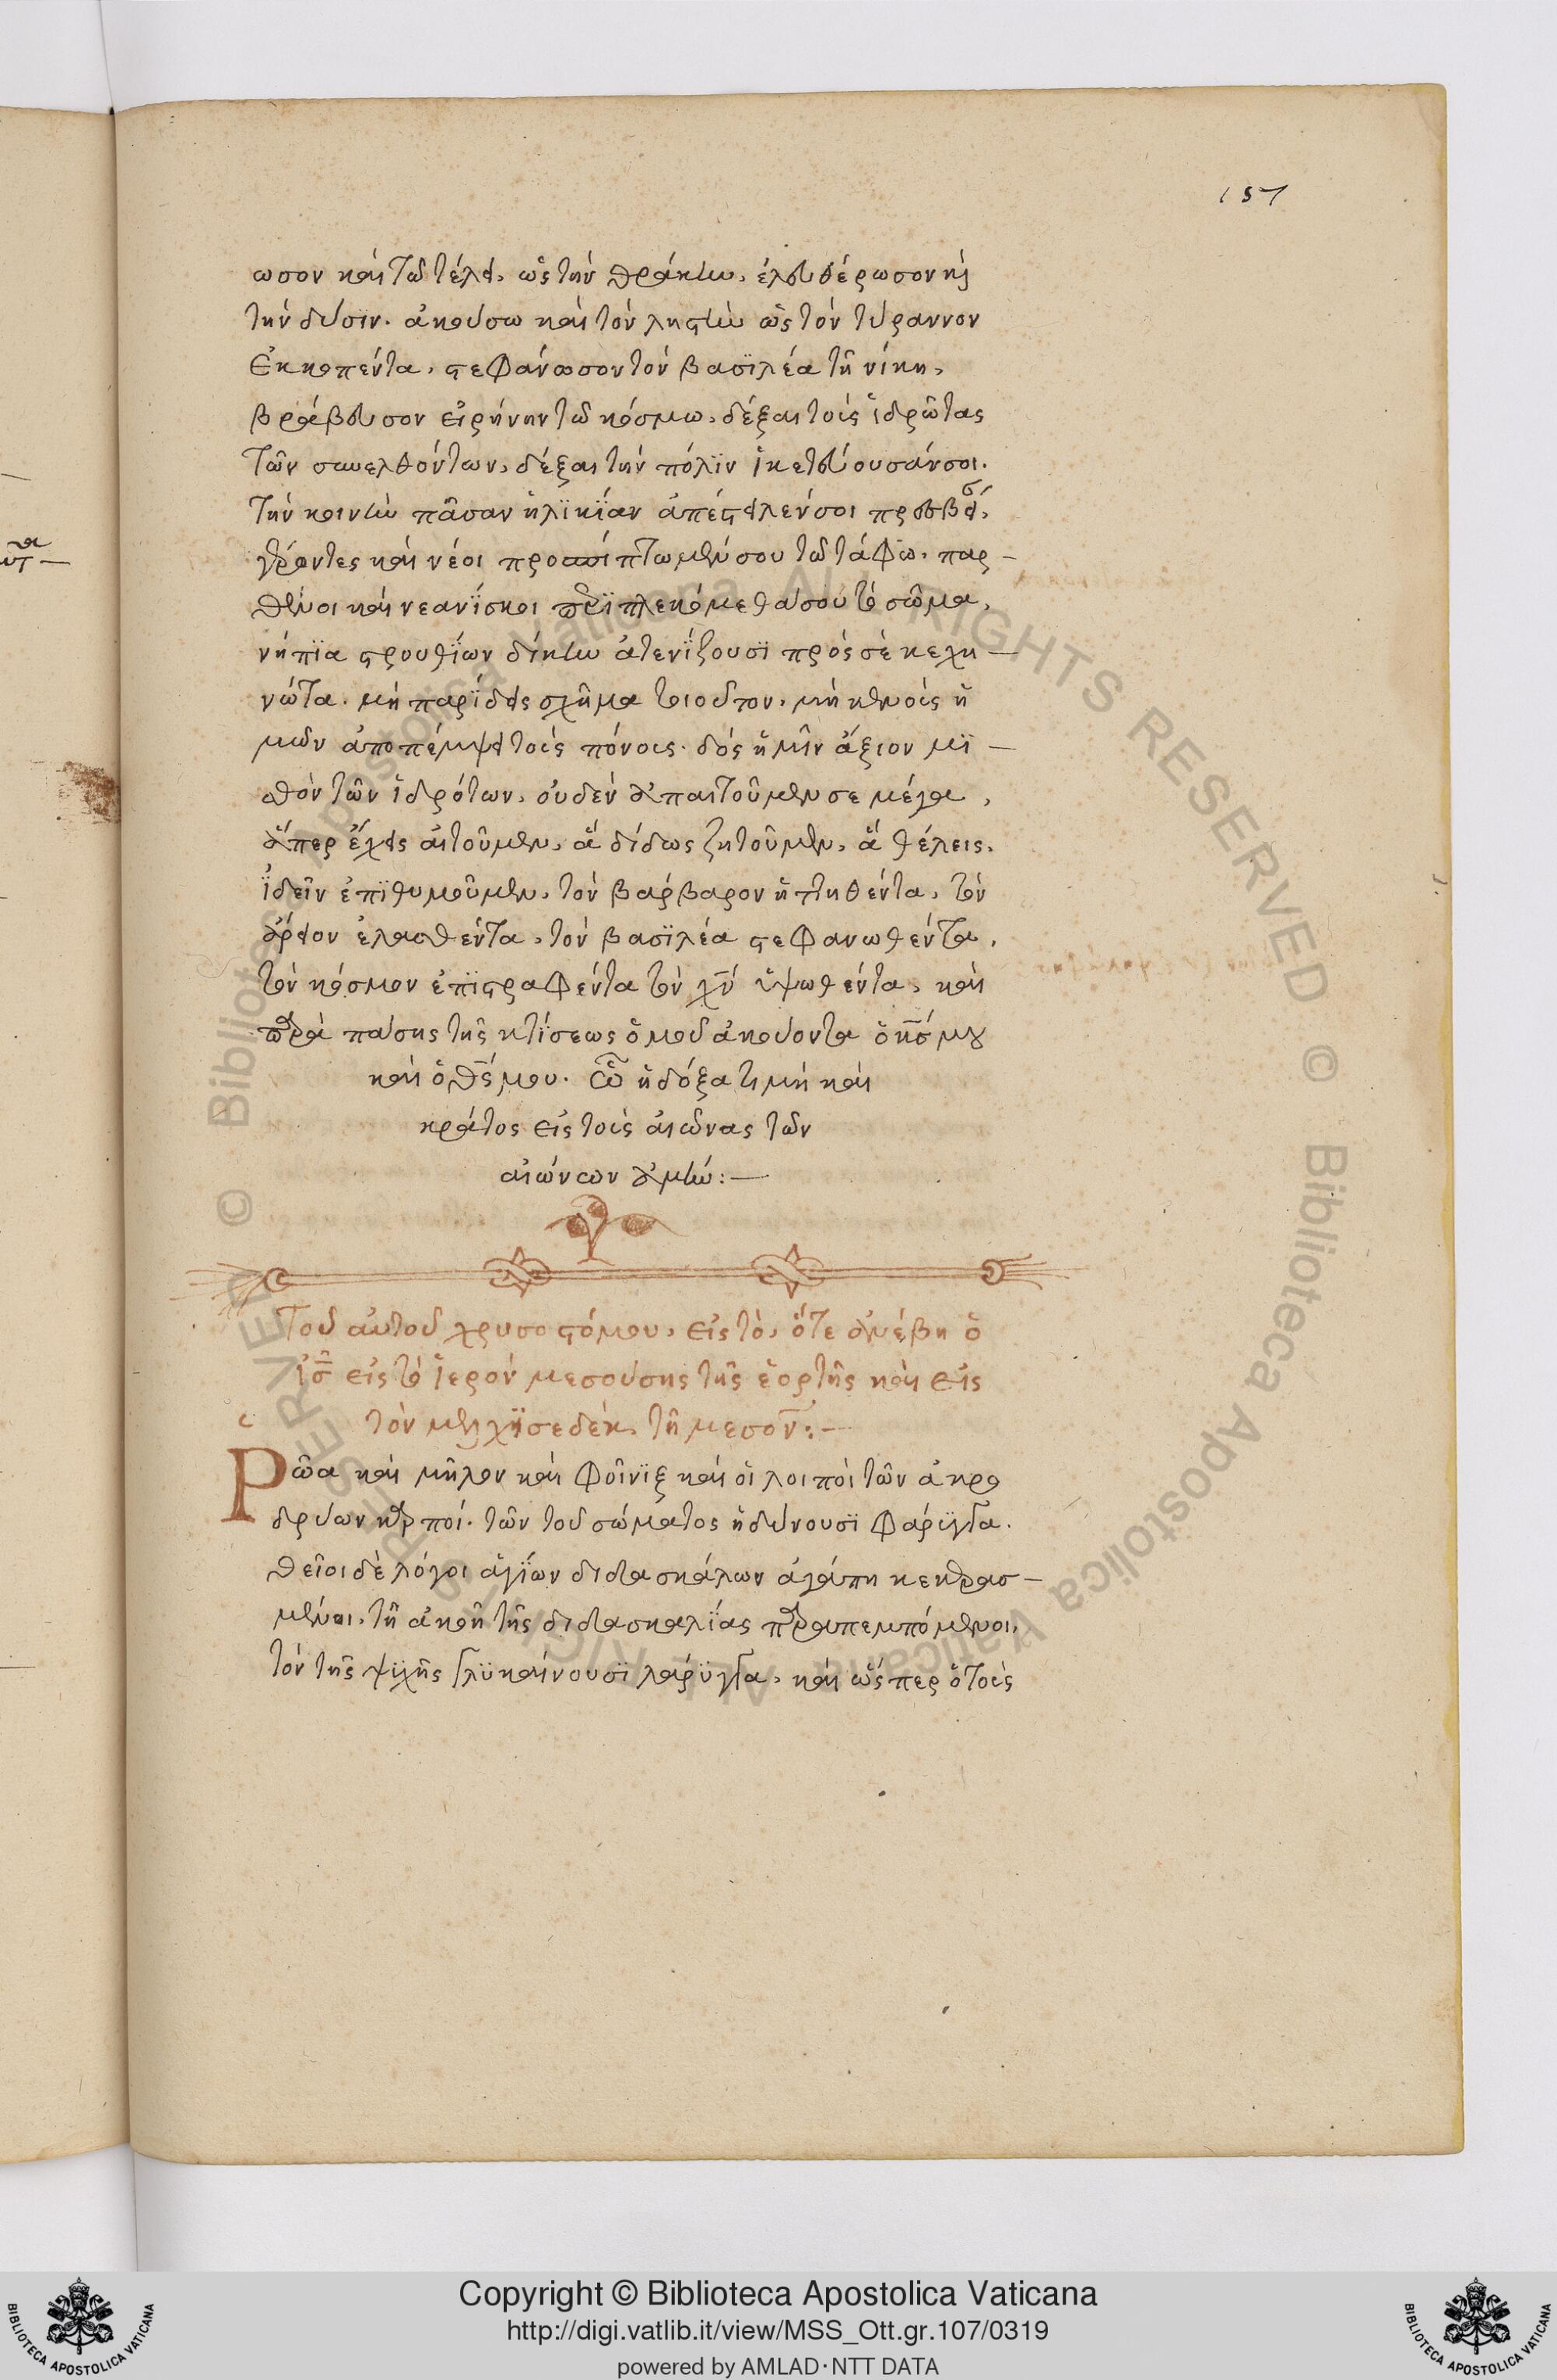 157
ωσον καὶ τῶ τέλει, ὡς τὴν θράκην, ἐλευθέρωσον κὶ
τὴν δύσιν. ἀκούσω καὶ τὸν ληστὴν ὡς τὸν τύραννον
ἐκκοπέντα, στεφάνωσον τὸν βασϊλέα τῆ νίκη,
βράβευσον εἰρήνην τῶ κόσμω, δέξαι τοὺς ἱδρῶτας
τῶν συνελθόντων, δέξαι τὴν πόλϊν ἱκετεύουσάν σοι.
τὴν κοινὴν πᾶσαν ἡλϊκΐαν ἀπέστειλέν σοι πρεσβεί,
γέροντες καὶ νέοι προσπίπτωμέν σου τῶ τάφω, παρ –
θένοι καὶ νεανΐσκοι περϊπλεκόμεθα σου τὸ σῶμα,
νήπϊα στρουθΐων δίκην ἀτενΐζουσϊ πρὸς σὲ κεχη –
νώτα. μὴ παρΐδεις σχῆμα τοιοῦτον, μὴ κενοὺς ἡ
μῶν ἀποπέμψει τοὺς πόνους. δὸς ἡμῖν ἄξιον μϊ –
σθὸν τῶν ἱδρότων, οὐδὲν ἀπαιτοῦμεν σε μέγα,
ἅπερ ἔχεις αἰτοῦμεν, ἃ δίδως ζητοῦμεν, ἃ θέλεις,
ἰδεῖν ἐπϊθυμοῦμεν, τὸν βάρβαρον ἡττηθέντα, τὸν
ἄρειον ἐλασθέντα, τὸν βασϊλέα στεφανωθέντα,
τὸν κόσμον ἐπϊστραφέντα τὸν χν ὑψωθέντα, καὶ
παρὰ πάσης τῆς κτΐσεως ὁμοῦ ἀκούοντα ὁ κς μου
καὶ ὁ θς μου. ὧ ἡ δόξα τιμὴ καὶ
κράτος εἰς τοὺς αἰῶνας τῶν
αἰώνων ἀμήν: –
Τοῦ αὐτοῦ χρυσοστόμου, εἰς τὸ, ὅτε ἀνέβη ὁ
ις εἰς τὸ ἱερὸν μεσούσης τῆς ἑορτῆς καὶ εἰς
τὸν μελχϊσεδέκ, τῆ μεσον: –
Ρῶα καὶ μῆλον καὶ φοῖνϊξ καὶ οἱ λοιποὶ τῶν ἀκρο
δρύων καρποί. τῶν τοῦ σώματος ἡδύνουσϊ φάρϋγγα.
θεῖοι δὲ λόγοι ἁγΐων διδασκάλων ἀγάπη κεκρασ –
μένοι, τῆ ἀκοῆ τῆς διδασκαλΐας παραπεμπόμενοι,
τὸν τῆς ψϋχῆς γλϋκαίνουσϊ λάρϋγγα, καὶ ὥσπερ ὁ τοὺς
Copyright © Biblioteca Apostolica Vaticana
http://digi.vatlib.it/view/MSS_Ott.gr.107/0319
powered by AMLAD·NTT DATA
BIBLIOTECA APOSTOLICA VATICANA
BIBLIOTECA APOSTOLICA VATICANA
© Biblioteca Apostolica Vaticana ALL RIGHTS RESERVED
© Biblioteca Apostolica Vaticana ALL RIGHTS RESERVED